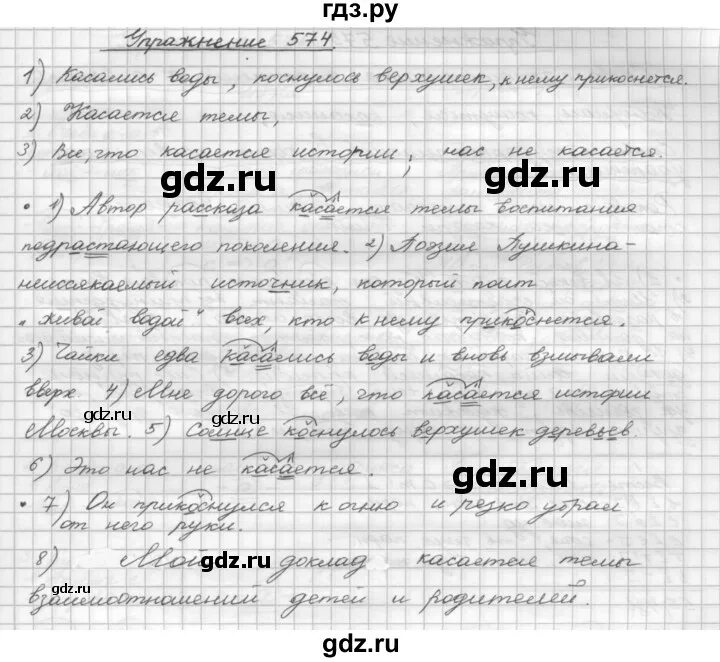 гдз.ру
Упражнение 574.
1) Касались воды, коснулось верхушек, к нему прикоснется.
2) Касается темы,
3) Все, что касается истории; нас не касается.
gdz.ru gdz.ru
• 1) Автор рассказа касается темы воспитания
подрастающего поколения. 2) Поэзия Пушкина-
неиссякаемый источник, который поит
„живой водой" всех, кто к нему прикоснется.
3) Чайки едва касались воды и вновь взмывали
вверх. 4) Мне дорого всё, что касается истории
gdz.ru gdz.ru
Москвы. 5) Солнце коснулось верхушек деревьев.
6) Это нас не касается.
gdz.ru
• 7) Он прикоснулся к огню и резко убрал
от него руки.
gdz.ru gdz.ru
8) Мой доклад касается темы
взаимоотношений детей и родителей.
gdz.ru